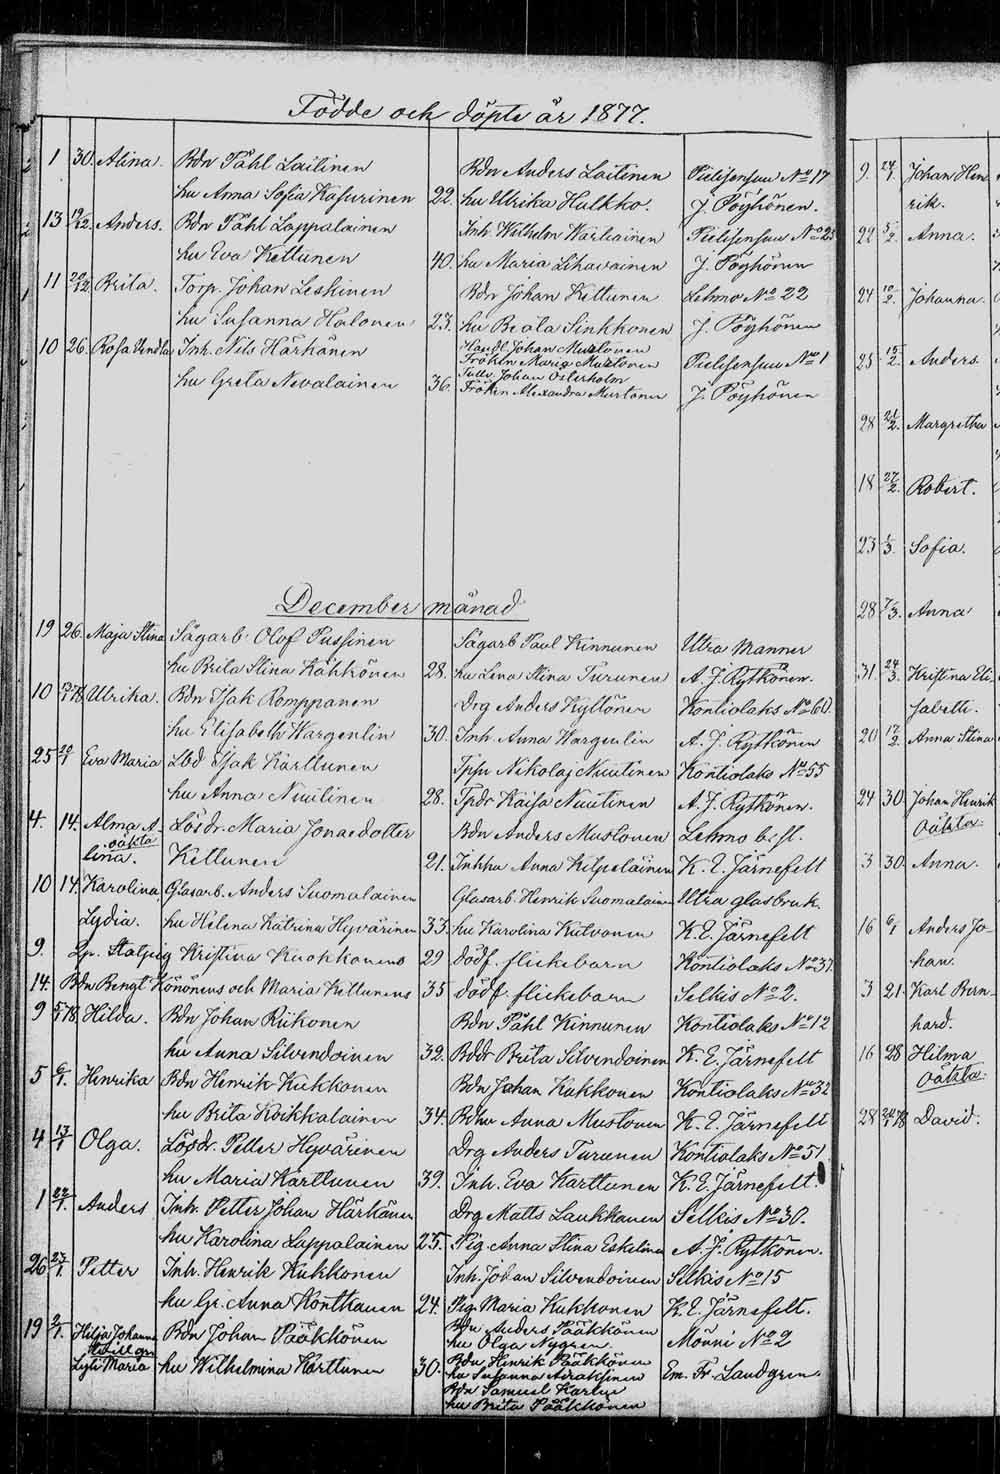 Födde och döpte år 1877.
1 30. Alina. Bdn Påhl Laitinen Bdn Anders Laitinen Pielisensuu No 17
hu Anna Sofia Kasurinen 22. hu Ulrika Hulkko. J. Pöyhönen.
13 19/12. Anders. Bdn Påhl Lappalainen Inh. Wilhelm Wartiainen Pielisensuu No 25
hu Eva Kettunen 40. hu Maria Lihavainen J. Pöyhönen
11 29/12 Brita. Torp. Johan Leskinen Bdn Johan Kettunen Lehmo No 22
hu Susanna Halonen 23. hu Beata Sinkkonen J. Pöyhönen
10 26. Rosa Vendla Inh. Nils Härkönen Handl. Johan Mustonen
Fröken Maria Mustonen Pielisensuu No 1
hu Greta Nevalainen 36. Johan Österholm
Fröken Alexandra Murtonen J. Pöyhönen
December månad
19 26. Maja Stina Sågarb. Olof Pussinen Sågarb Paul Kinnunen Utra Manner
hu Brita Stina Kähkönen 28. hu Lena Stina Turunen A. J. Rytkönen.
10 78 Ulrika. Bdn Isak Romppanen Drg Anders Kyllönen Kontiolaks No 60
hu Elisabeth Wargenlin 30. Inh Anna Wargenlin A. J. Rytkönen
25 20/1 Eva Maria Lbd Isak Karttunen Tpp Nikolaj Nuutinen Kontiolaks No 55
hu Anna Nuutinen 28. Tpdr Kaisa Nuutinen A. J. Rytkönen.
4. 14. Alma A- Lösdr. Maria Jonasdotter Bdn Anders Mustonen Lehmo
oäkta
lina. Kettunen 21. Inhhu Anna Kilpeläinen K. E. Järnefelt
10 14. Karolina Glasarb. Anders Suomalainen Glasarb. Henrik Suomalainen Utra glasbruk.
Lydia. hu Helena Katrina Hyvärinen 33. hu Karolina Kutvonen K. E. Järnefelt
9. Kristina Kuokkonens 29 dödf. flickebarn Kontiolaks No 37.
14. Bdn Bengt Könönens och Maria Kettunens 35 dödf. flickebarn Selkis No 2.
9 5/1 78. Hilda. Bdn Johan Riikonen Bdn Påhl Kinnunen Kontiolaks No 12
hu Anna Silvendoinen 32. Bddr Brita Silvendoinen K. E. Järnefelt
5 6/1. Henrika Bdn Henrik Kukkonen Bdn Johan Kukkonen Kontiolaks No 32
hu Brita Koikkalainen 34. Bdhu Anna Mustonen K. E. Järnefelt
4 13/1 Olga. Lösdr. Petter Hyvärinen Drg Anders Turunen Kontiolaks No 51
hu Maria Karttunen 39. Inh. Eva Karttunen K. E. Järnefelt.
1 22/1. Anders Inh. Petter Johan Härkönen Drg Matts Laukkanen Selkis No 30.
hu Karolina Lappalainen 25. Pig. Anna Stina Eskelinen A. J. Rytkönen.
26 27/1. Petter Inh. Henrik Kukkonen Inh. Johan Silvendoinen Selkis No 15
hu Gr. Anna Kontkanen 24. Pig. Maria Kukkonen K. E. Järnefelt.
19 2/1. Hilja Johanna Bdn Johan Pääkkönen Bdn Anders Pääkkönen
hu Olga Nygren Mönni No 2
Lyti Maria hu Wilhelmina Karttunen 30. Bdn Henrik Pääkkönen
hu Susanna Asraksinen Em. Fr. Landgren.
Bdn Samuel Karlus
hu Brita Pääkkönen
9. 24/1 Johan Hen
rik.
22 5/2. Anna.
24 10/2. Johanna.
25 15/2. Anders
28 21/2. Margretha
18 27/2. Robert.
23 1/3. Sofia.
28 7/3. Anna
31 24/3. Kristina Eli-
sabeth.
20 12/2 Anna Stina
24 30 Johan Henrik
Oäkta.
3 30. Anna.
16 6/1 Anders Jo-
han.
3 21. Karl Bern-
hard.
16 28 Hilma
Oäkta.
28 78 David.